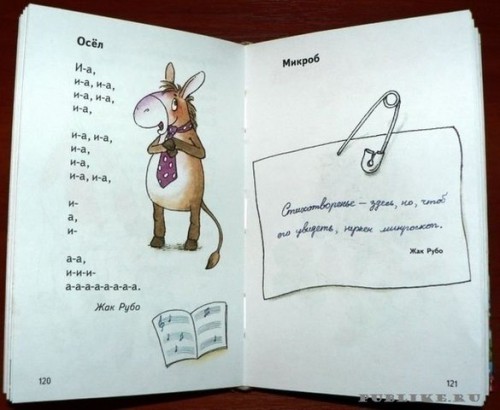 Осёл
И-а,
и-а, и-а,
и-а, и-а,
и-а,
и-а, и-а,
и-а,
и-а,
и-а, и-а,
и-
а,
и-
а-а,
и-и-и-
а-а-а-а-а-а-а-а.
Жак Рубо
120
Микроб
Стихотворенье – здесь, но, чтоб
его увидеть, нужен микроскоп.
Жак Рубо
121
PUBLIKE.RU